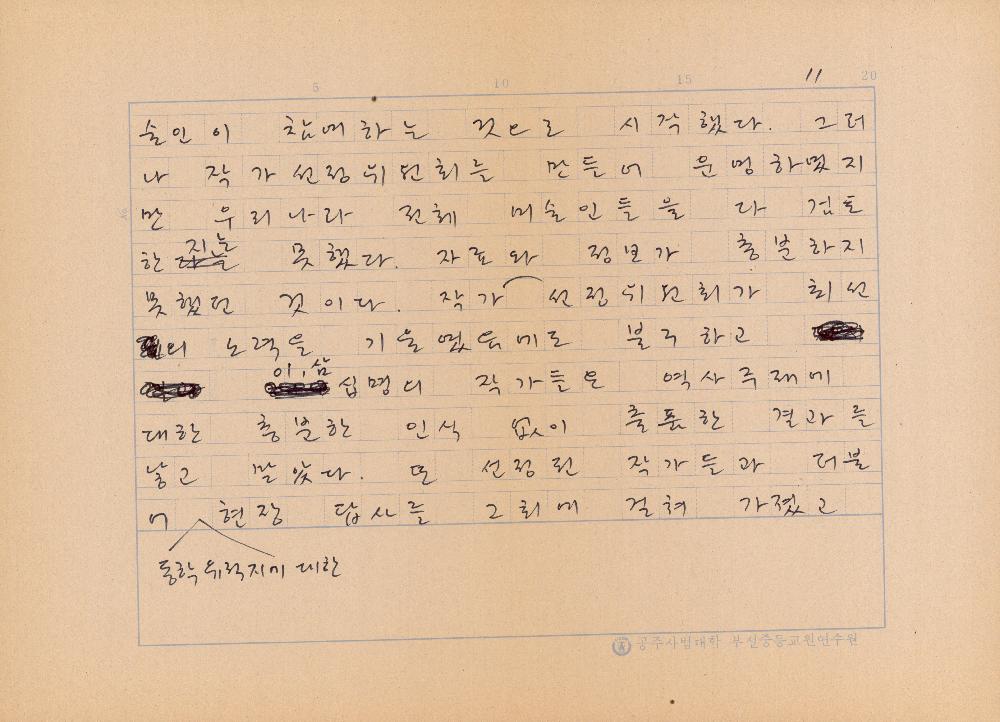 11
5 10 15 20
술인이 참여하는 것으로 시작했다. 그러
나 작가선정위원회를 만들어 운영하였지
만 우리나라 전체 미술인들을 다 검토
한 지는 못했다. 자료와 정보가 충분하지
못했던 것이다. 작가 선정위원회가 최선
의 노력을 기울였음에도 불구하고
이,삼
십명의 작가들은 역사주제에
대한 충분한 인식 없이 출품한 결과를
낳고 말았다. 또 선정된 작가들과 더불
어 현장 답사를 2회에 걸쳐 가졌고
동학유적지에 대한
공주사범대학 부설중등교원연수원